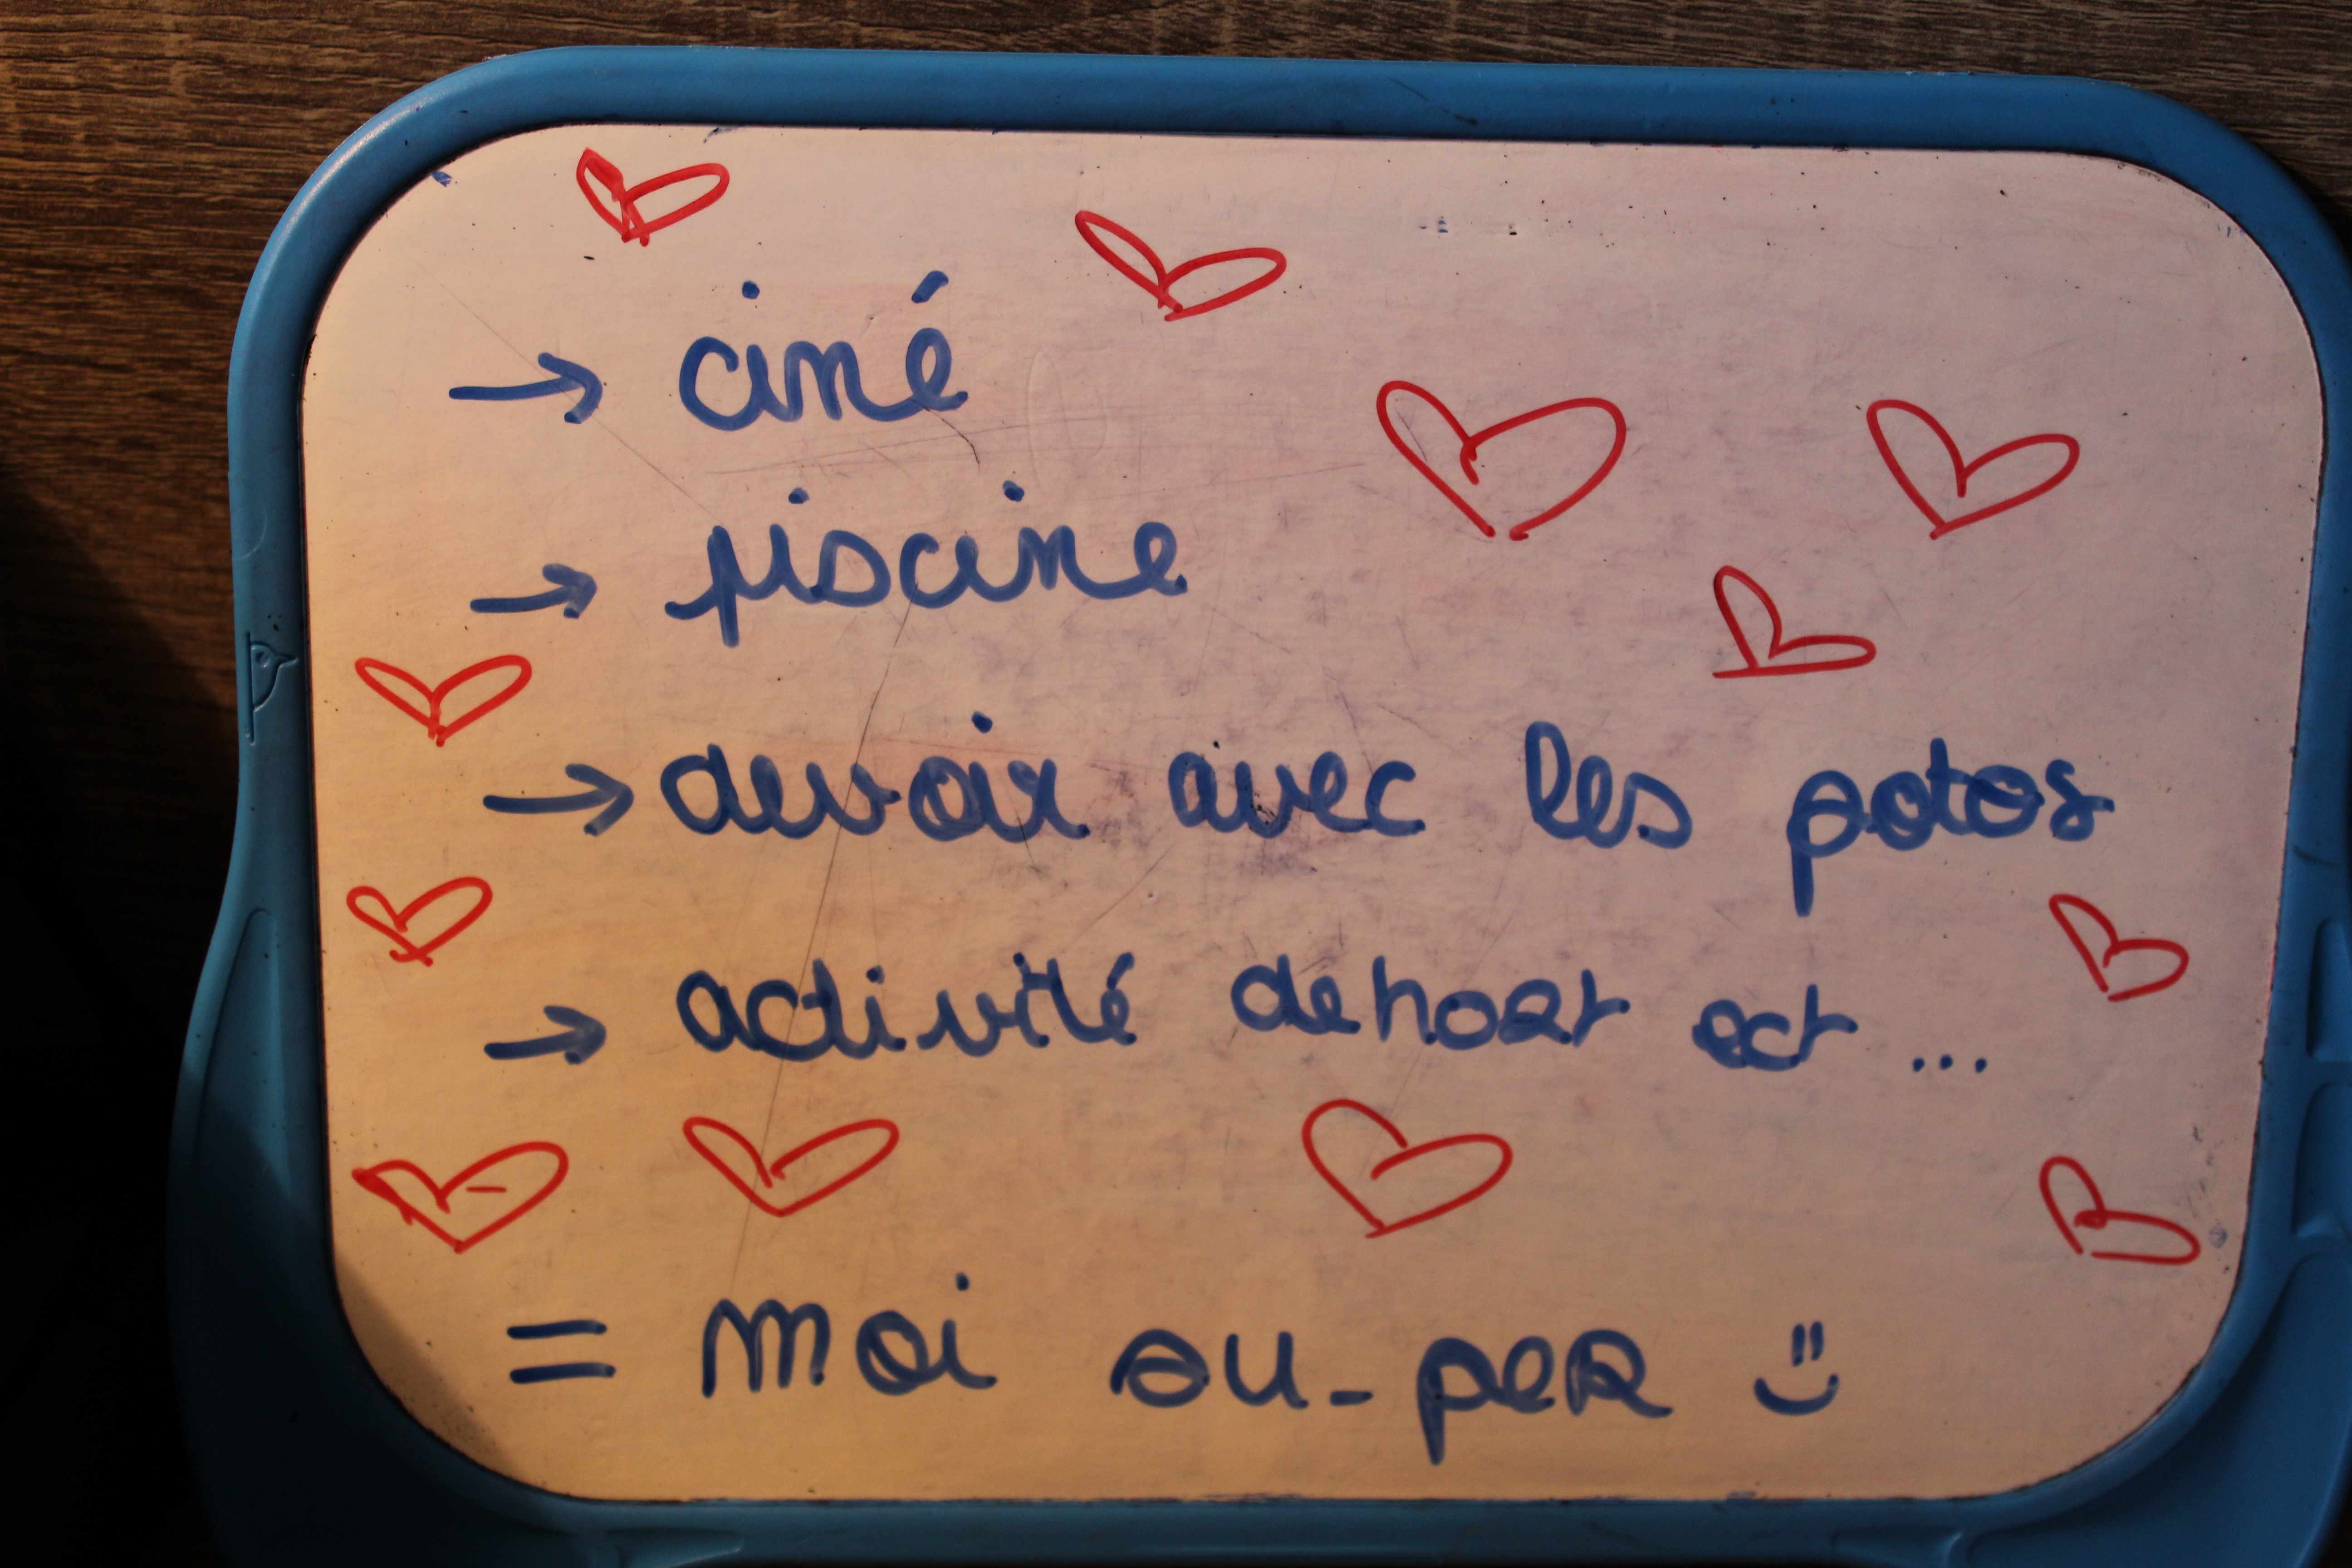 → ciné
→ piscine
→ devoir avec les potos
→ activité dehort ect ...
= moi au-per